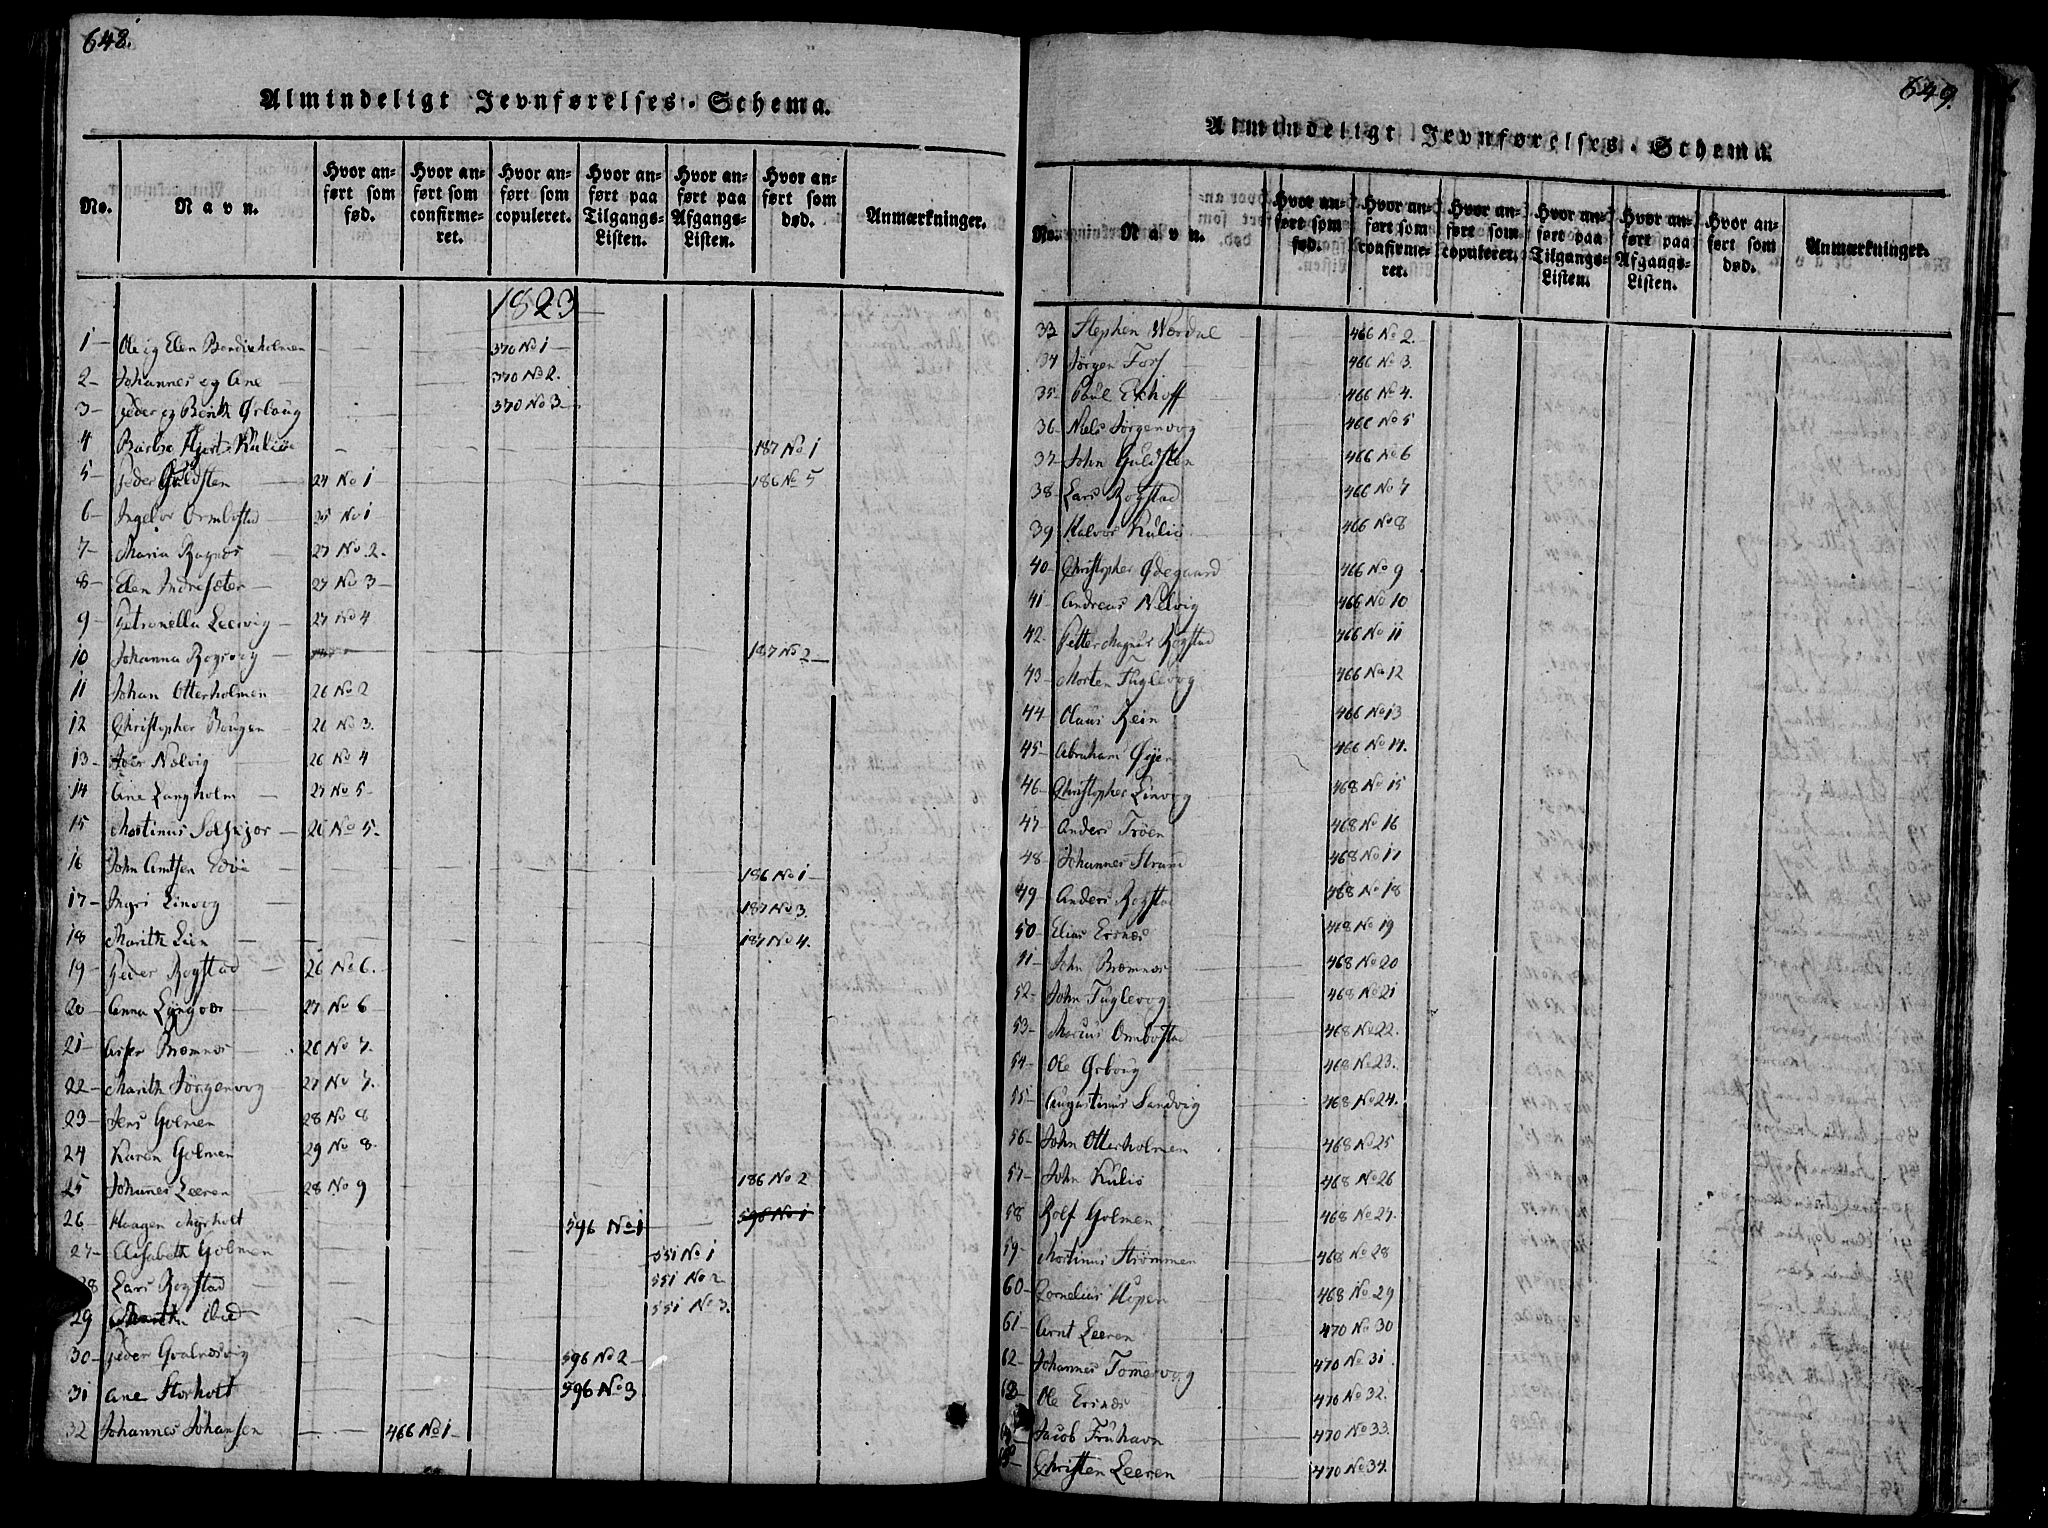 648.
Almindeligt Jevnførelses-Schema.
No. Navn. Hvor anført som fød. Hvor anført som confirmeret. Hvor anført som copuleret. Hvor anført paa Tilgangs-Listen. Hvor anført paa Afgangs-Listen. Hvor anført som død. Anmærkninger.
1823
1 Ole og Elen Bendixholmen 370 No 1
2 Johannes og Ane 370 No 2.
3 Peder og Berith Ørboug 370 No 3
4 Hjort Kuliøe 187 No 1
5 Peder Guldsten 24 No 1 186 No 5
6 Ingebor Ormbostad 25 No 1
7 Maria Ragnes 27 No 2.
8 Elen Indresæter 27 No 3
9 Petronella Leervig 27 No 4
10 Johanna Rogvog 187 No 2
11 Johan Otterholmen 26 No 2
12 Christopher Bougen 26 No 3.
13 Nelvig 26 No 4
14 Ane Langholm 27 No 5
15 Mortinus Solskjør 26 No 5.
16 John Arntsen Edøe 186 No 1
17 Ingri Linvog 187 No 3.
18 Marith Lien 187 No 4.
19 Peder Rogstad 26 No 6.
20 Anna Lyngvær 27 No 6
21 Bremnes 26 No 7.
22 Marith Jörgenvog 27 No 7.
23 Jens Golmen 28 No 8
24 Karen Golmen 29 No 8.
25 Johanes Leeren 28 No 9 186 No 2
26 Haagen Myrholt 596 No 1 596 No 1
27 Elisabeth Golmen 551 No 1
28 Lars Rogstad 551 No 2
29 551 No 3.
30 Peder Gvalnesvig 596 No 2
31 Ane Storholt 596 No 3
32 Johannes Johansen 466 No 1
649.
Almindeligt Jevnførelses-Schema
No. Navn. Hvor anført som fød. Hvor anført som confirmeret. Hvor anført som copuleret. Hvor anført paa Tilgangs-Listen. Hvor anført paa Afgangs-Listen. Hvor anført som død. Anmærkninger.
33 Stephen Werdal 466 No 2.
34 Jørgen Fors 466 No 3.
35 Paul Exhoff 466 No 4.
36 Niels Jörgenvog 466 No 5
37 John Guldsten 466 No 6
38 Lars Rogstad 466 No 7
39 Halvor Kuliø 466 No 8
40 Christopher Ødegaard 466 No 9
41 Andreas Nelvig 466 No 10
42 Petter Magnus Rogstad 466 No 11
43 Morten Fuglevog 466 No 12
44 Olaus Rein 466 No 13
45 Abraham Øyen 466 No 14.
46 Christopher Linvog 468 No 15
47 Anders Tröen 468 No 16
48 Johannes Strand 468 No 17
49 Anders Rogstad 468 No 18
50 Elias Ersnes 468 No 19
51 John Bremnes 468 No 20
52 John Fuglevog 468 No 21
53 Marius Ormbostad 468 No 22.
54 Ole Ørbog 468 No 23.
55 Augustinus Sandvig 468 No 24.
56 John Otterholmen 468 No 25
57 John Kuliø 468 No 26
58 Rolf Golmen 468 No 27.
59 Mortinus Strömmen 468 No 28
60 Cornelius Hopen 468 No 29
61 Arnt Leeren 470 No 30
62 Johannes Tomervog 470 No 31
63 Ole Ersnes 470 No 32.
64 Jacob Fruhavn 470 No 33.
Christen Leeren 470 No 34.